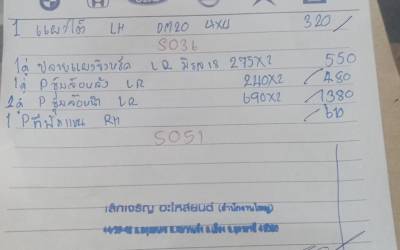 1 แผงใต้ LH DM20 4X4 320/
SO36
1คู่ ปลายแผงจิ้งหรีด LR มิราจ 275x2 550
1คู่ P ซุ้มล้อหลัง LR 240x2 480
2คู่ P ซุ้มล้อหน้า LR 690x2 1380
1 P RH
SO51
เลิศเจริญ อะไหล่ยนต์ (สำนักงานใหญ่)